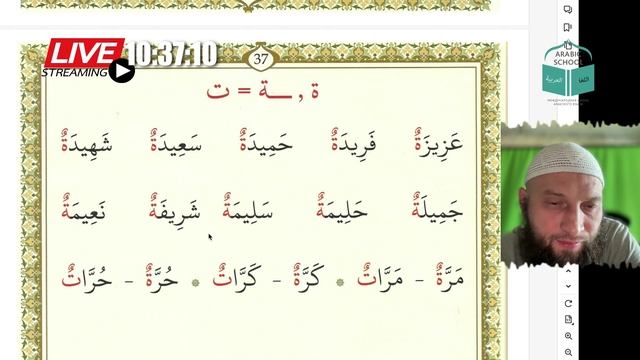 LIVE 10:37:10
STREAMING
37
ARABIC
SCHOOL
ة , ـة = ت
عَزِيزَةٌ فَرِيدَةٌ حَمِيدَةٌ سَعِيدَةٌ شَهِيدَةٌ
جَمِيلَةٌ حَلِيمَةٌ سَلِيمَةٌ شَرِيفَةٌ نَعِيمَةٌ
مَرَّةٌ - مَرَّاتٌ * كَرَّةٌ - كَرَّاتٌ * حُرَّةٌ - حُرَّاتٌ